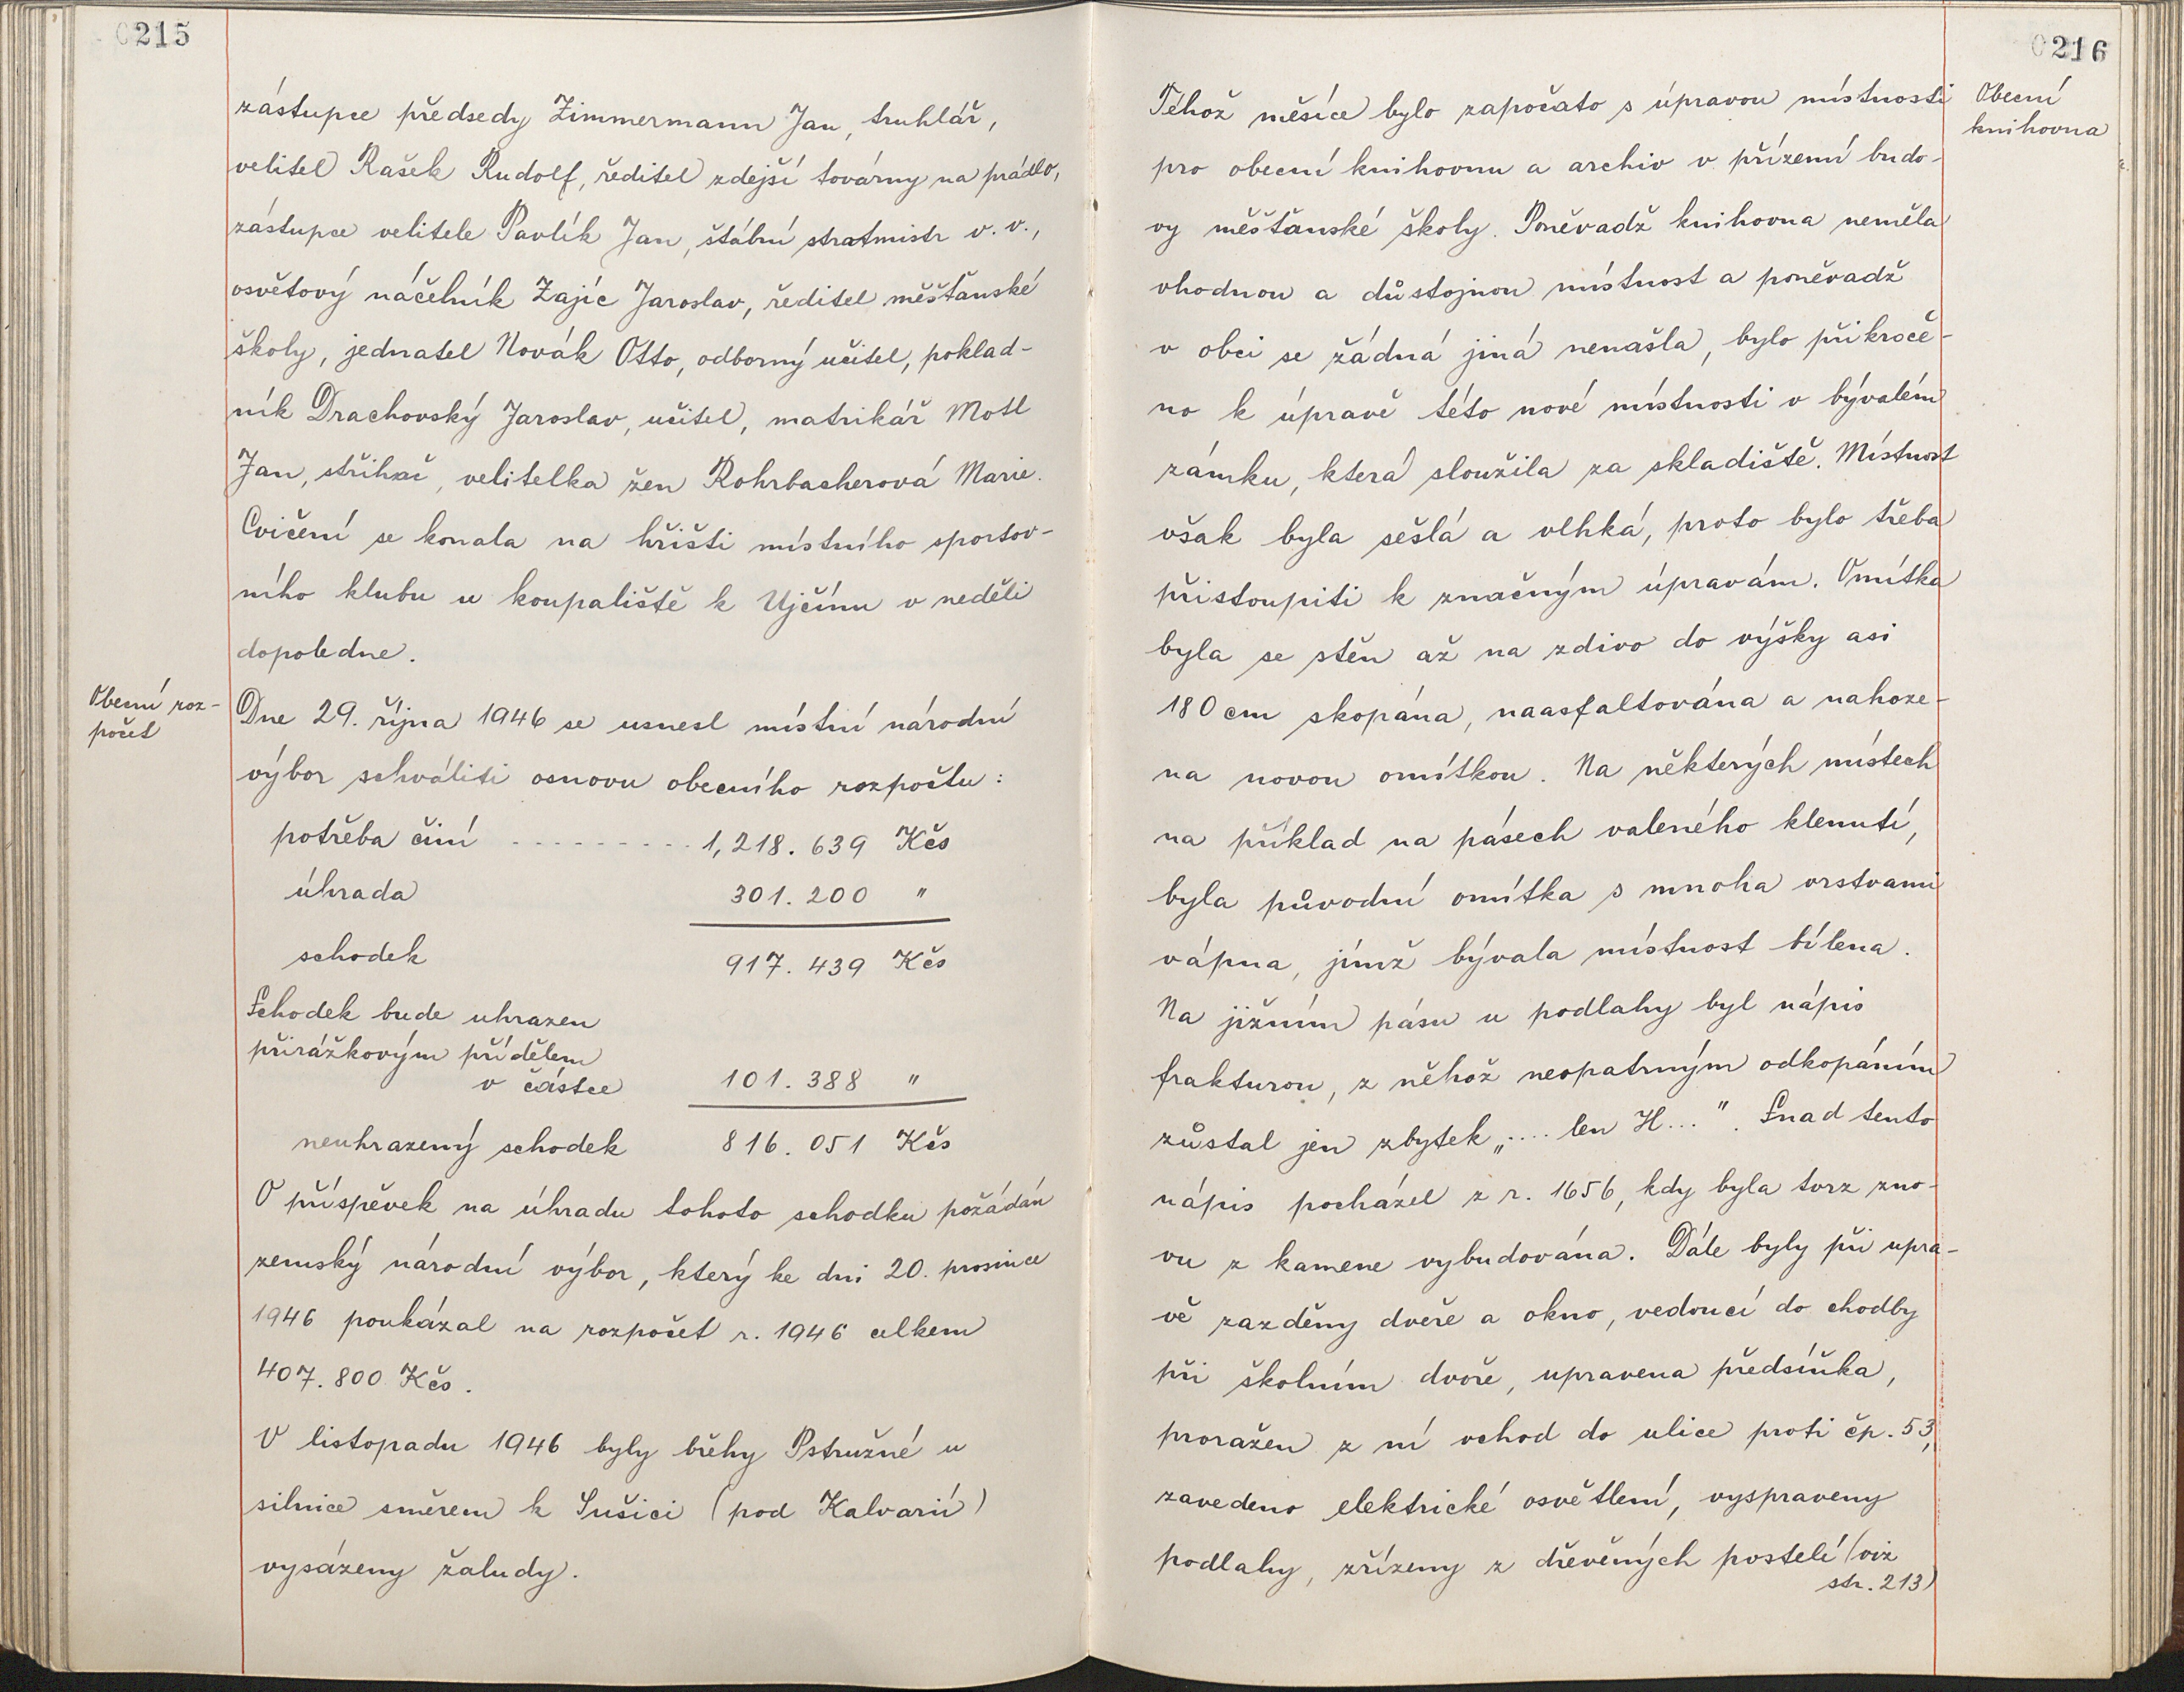 0215
zástupce předsedy Zimmermann Jan, truhlář,
velitel Rašek Rudolf, ředitel zdejší továrny na prádlo,
zástupce velitele Pavlík Jan, štábní stratmistr v. v.,
osvětový náčelník Zajíc Jaroslav, ředitel měšťanské
školy, jednatel Novák Otto, odborný učitel, poklad-
ník Drachovský Jaroslav, učitel, matrikář Motl
Jan, střihač, velitelka žen Rohrbacherová Marie.
Cvičení se konala na hřišti místního sportov-
ního klubu u koupaliště k Ujčínu v neděli
dopoledne.
Obecní roz-
počet
Dne 29. října 1946 se usnesl místní národní
výbor schváliti osnovu obecního rozpočtu:
potřeba činí .......... 1,218.639 Kčs
úhrada 301.200 "
schodek 917.439 Kčs
Schodek bude uhrazen
přirážkovým přídělem
v částce 101.388 "
neuhrazený schodek 816.051 Kčs
O příspěvek na úhradu tohoto schodku požádán
zemský národní výbor, který ke dni 20. prosince
1946 poukázal na rozpočet r. 1946 celkem
407.800 Kčs.
V listopadu 1946 byly břehy Pstružné u
silnice směrem k Sušici (pod Kalvarií)
vysázeny žaludy.
0216
Obecní
knihovna
Téhož měsíce bylo započato s úpravou místnosti
pro obecní knihovnu a archiv v přízemí budo-
vy měšťanské školy. Poněvadž knihovna neměla
vhodnou a důstojnou místnost a poněvadž
v obci se žádná jiná nenašla, bylo přikroče-
no k úpravě této nové místnosti v bývalém
zámku, která sloužila za skladiště. Místnost
však byla sešlá a vlhká, proto bylo třeba
přistoupiti k značným úpravám. Omítka
byla se stěn až na zdivo do výšky asi
180 cm skopána, naasfaltována a nahoze-
na novou omítkou. Na některých místech
na příklad na pásech valeného klenutí,
byla původní omítka s mnoha vrstvami
vápna, jímž bývala místnost bílena.
Na jižním pásu u podlahy byl nápis
frakturou, z něhož neopatrným odkopáním
zůstal jen zbytek „.... len H...". Snad tento
nápis pocházel z r. 1656, kdy byla tvrz zno-
vu z kamene vybudována. Dále byly při upra-
vě zazděny dveře a okno, vedoucí do chodby
při školním dvoře, upravena předsíňka,
proražen z ní vchod do ulice proti čp. 53,
zavedeno elektrické osvětlení, vyspraveny
podlahy, zřízeny z dřevěných postelí (viz
str. 213)